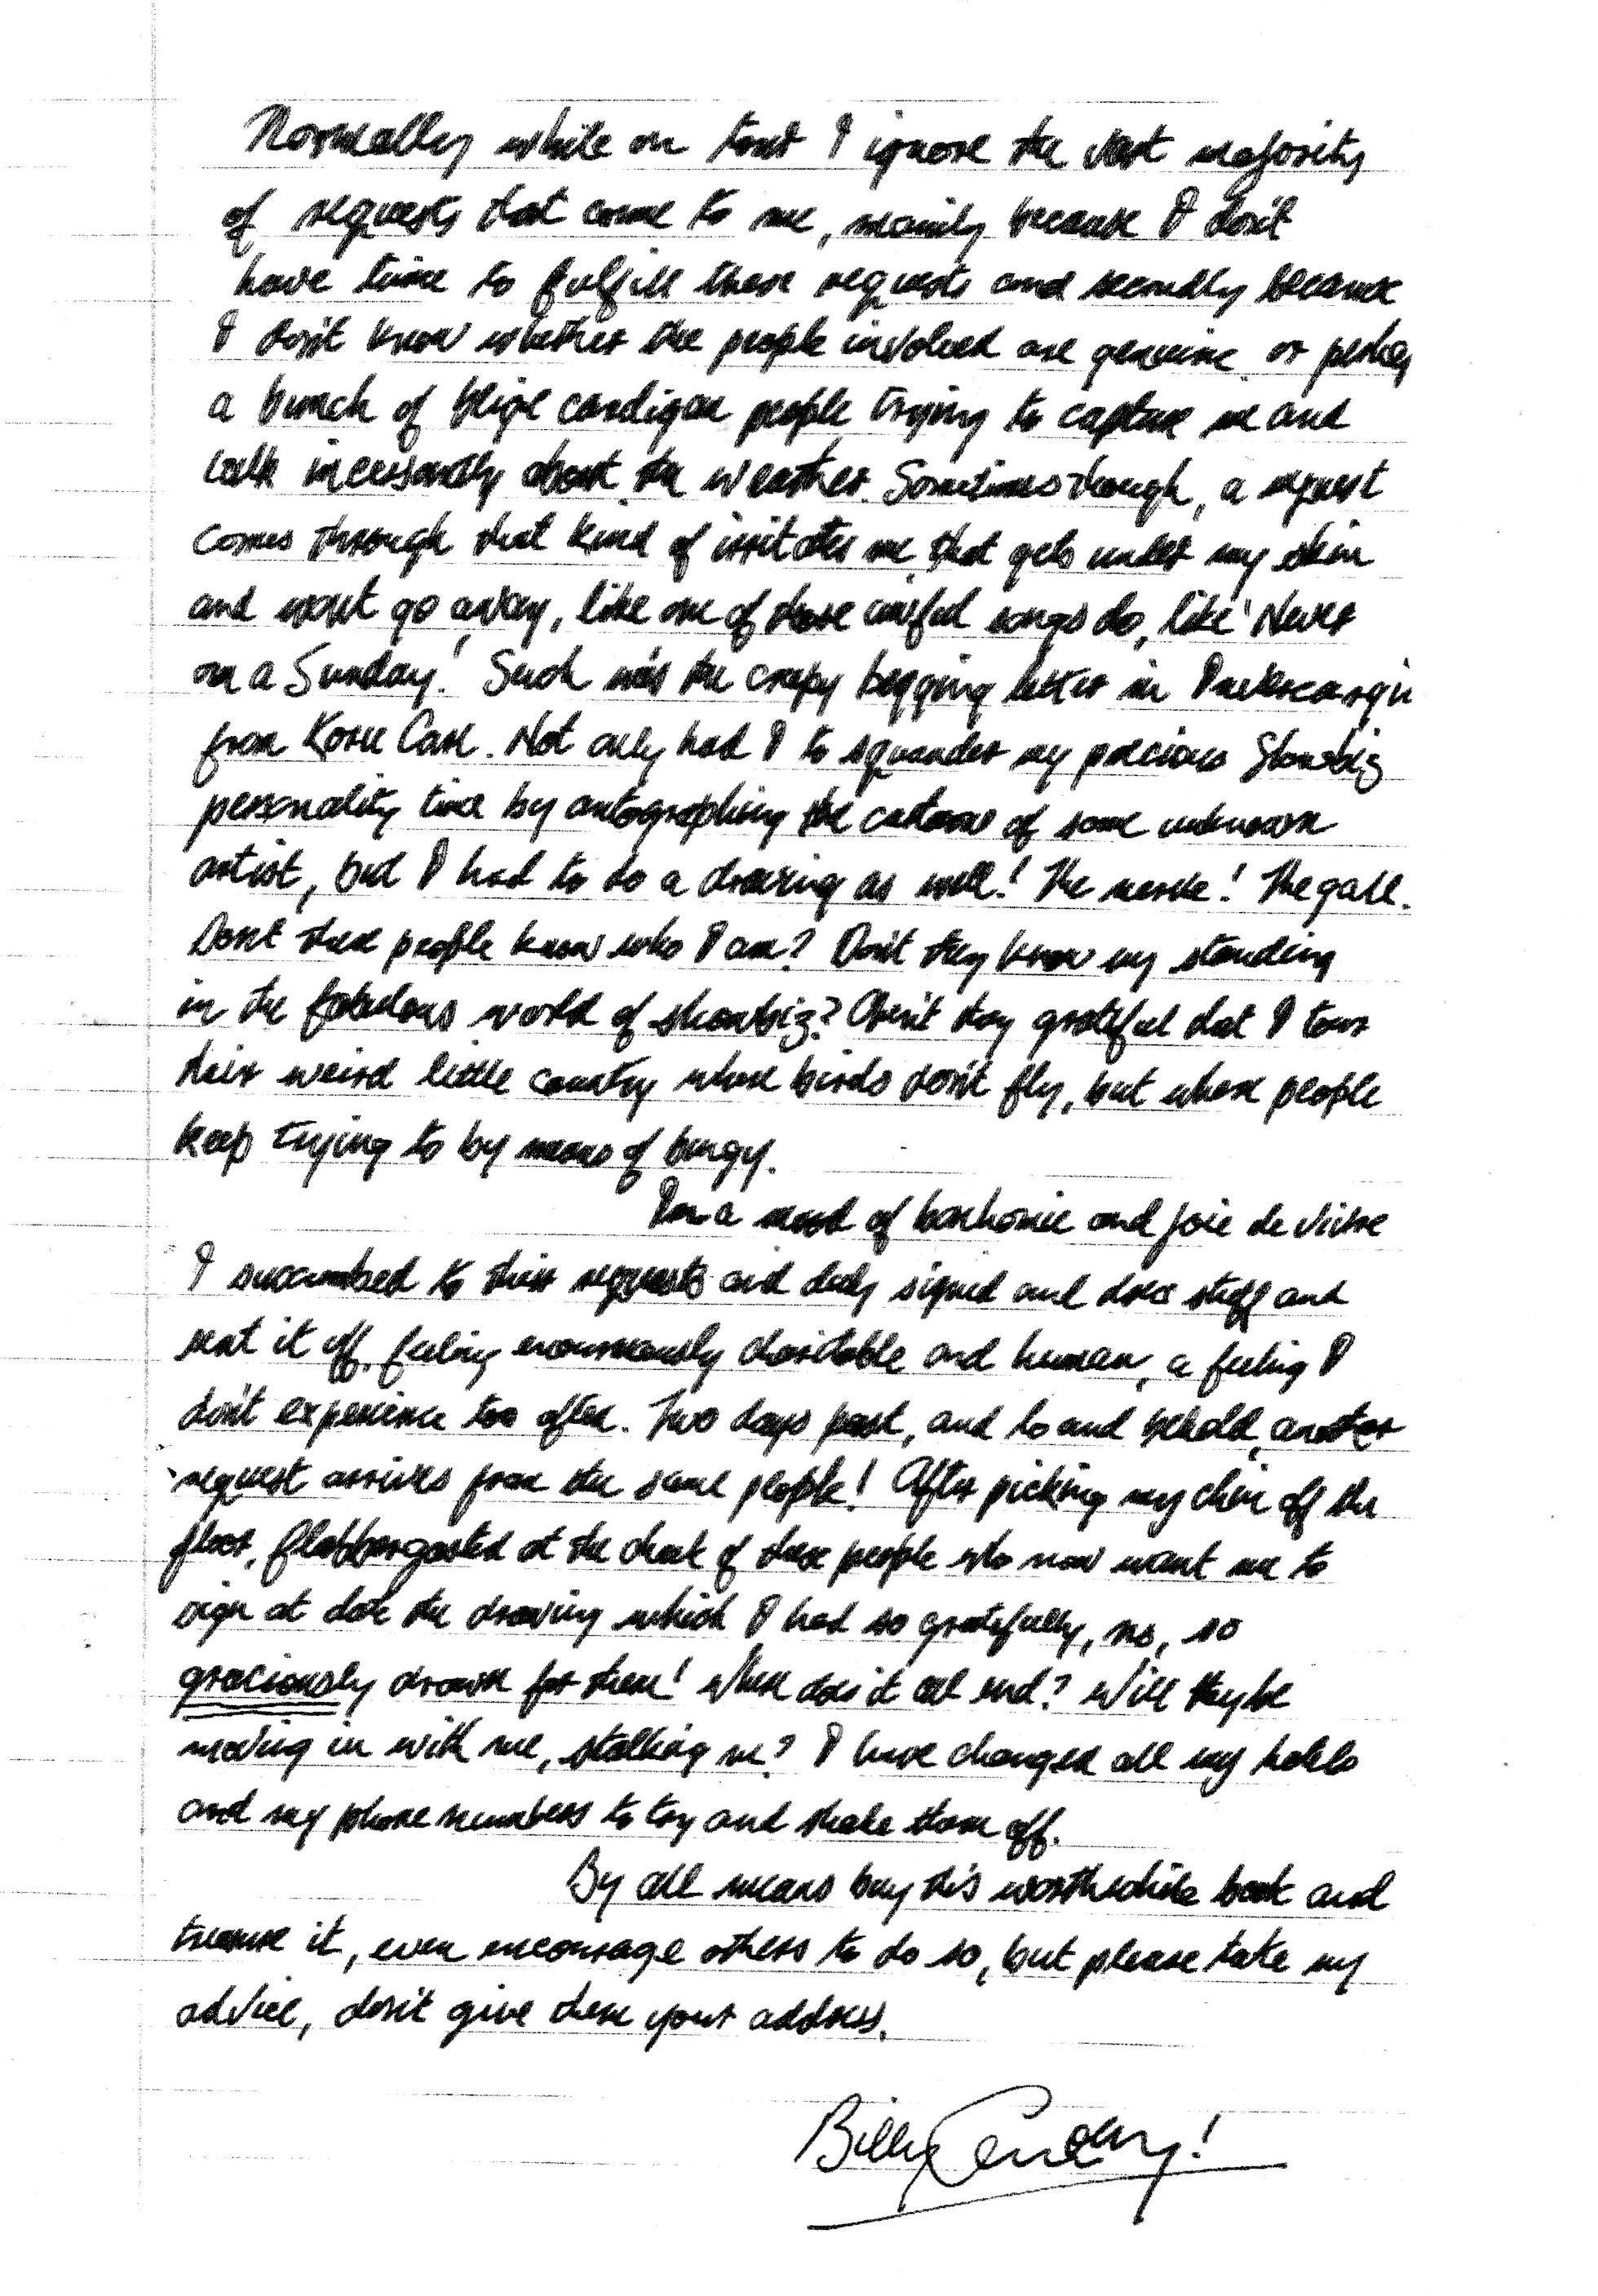 Normally while on tour I ignore the vast majority
of requests that come to me, mainly because I don't
have time to fulfill these requests and secondly because
I don't know whether the people involved are genuine or
a bunch of beige cardigan people trying to capture me and
talk incessantly about the weather. Sometimes though, a request
comes through that kind of irritates me, that gets under my skin
and won't go away, like one of those awful songs do, like 'Never
on a Sunday.' Such was the creepy begging letter in Invercargill
from Case. Not only had I to squander my precious Showbiz
personality time by autographing the cartoon of some unknown
artist, but I had to do a drawing as well! The nerve! The gall.
Don't these people know who I am? Don't they know my standing
in the fabulous world of showbiz? Aren't they grateful that I tour
their weird little country where birds don't fly, but where people
keep trying to by means of bungy.
In a mood of bonhomie and joie de vivre
I succumbed to their requests and duly signed and drew stuff and
sent it off, feeling enormously charitable and human, a feeling I
don't experience too often. Two days past, and lo and behold, another
request arrives from the same people! After picking my chin off the
floor, flabbergasted at the cheek of these people who now want me to
sign at date the drawing which I had so gratefully, no, so
graciously drawn for them! When does it all end? Will they be
moving in with me, stalking me? I have changed all my hotels
and my phone numbers to try and shake them off.
By all means buy this worthwhile book and
treasure it, even encourage others to do so, but please take my
advice, don't give them your address.
Billy Connolly!